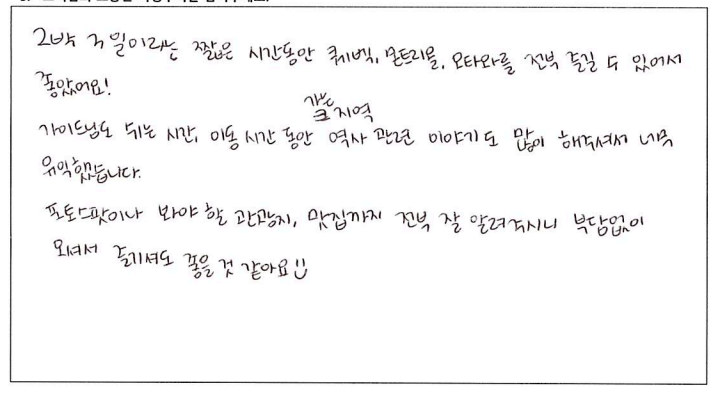 2박 3일이라는 짧은 시간동안 퀘벡, 몬트리올, 오타와를 전부 즐길 수 있어서
좋았어요!
가는
큰 지역
가이드님도 쉬는 시간, 이동 시간 동안 역사 관련 이야기도 많이 해주셔서 너무
유익했습니다.
포토스팟이나 봐야 할 관광지, 맛집까지 전부 잘 알려주시니 부담없이
오셔서 즐기셔도 좋을 것 같아요!!